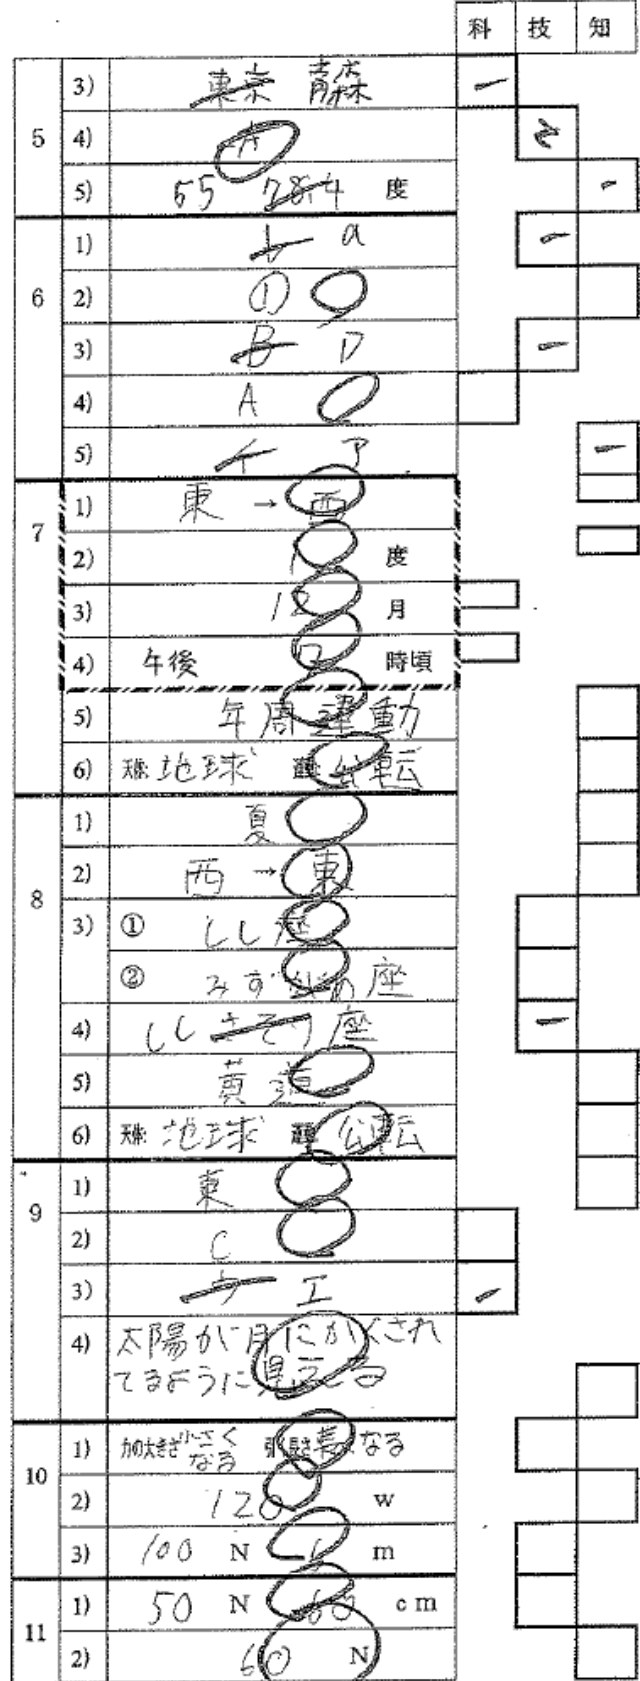 科 技 知
5 3) 東京 青森
4) A
5) 55 28.4 度
6 1) b a
2) ①
3) B D
4) A
5) イ ア
7 1) 東 → 西
2) 1 度
3) 12 月
4) 午後 時頃
5) 年周運動
6) 天体: 地球 運動: 公転
8 1) 夏
2) 西 → 東
3) ① しし座
② みずがめ座
4) しし さそり 座
5) 黄道
6) 天体: 地球 運動: 公転
9 1) 東
2) C
3) ウ エ
4) 太陽が月にかくされ
てるように見える
10 1) 力の大きさ 小さく なる 引く長さ 長くなる
2) 120 w
3) 100 N 6 m
11 1) 50 N 60 cm
2) 60 N